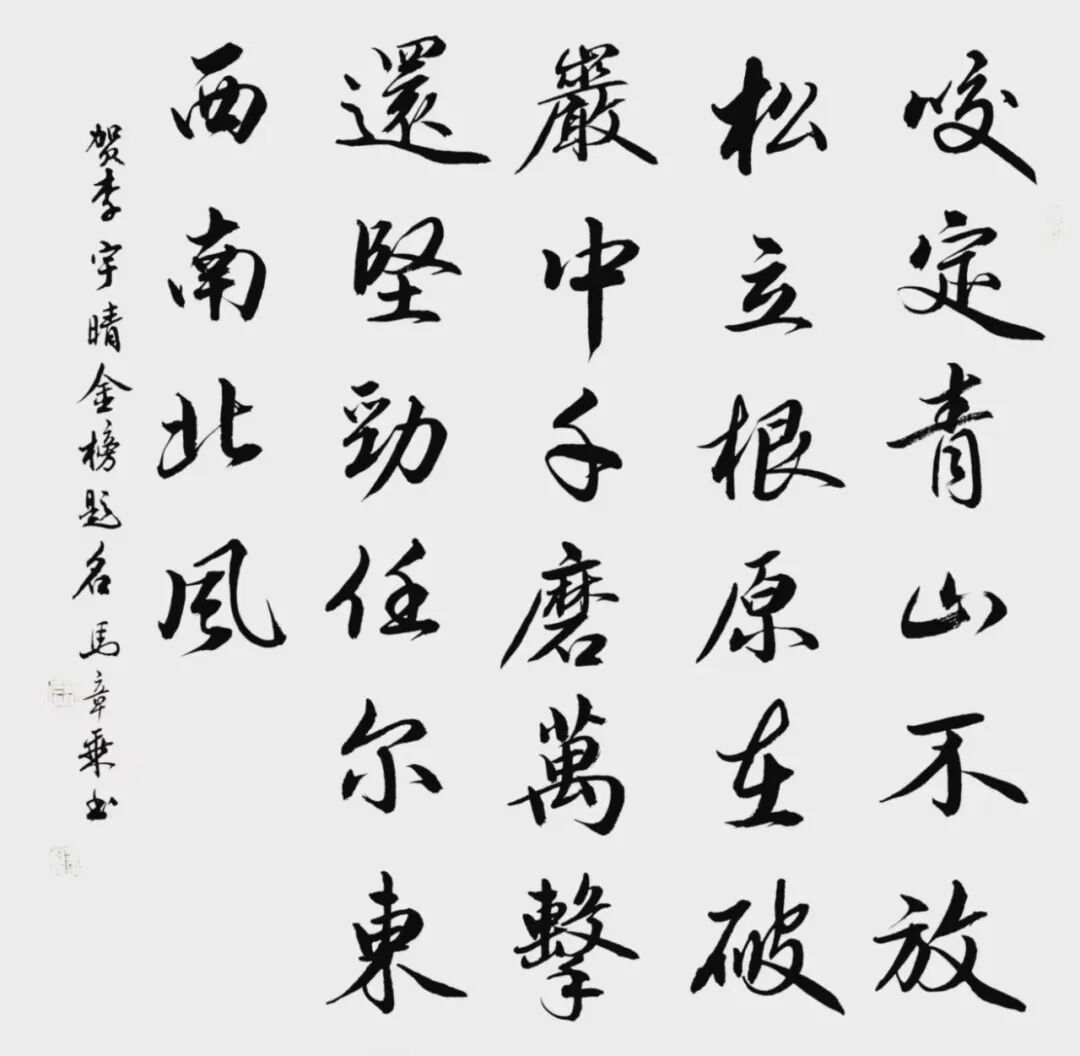 咬定青山不放
松立根原在破
巖中千磨萬擊
還堅勁任尔東
西南北风
贺李宇晴金榜题名马章乘书